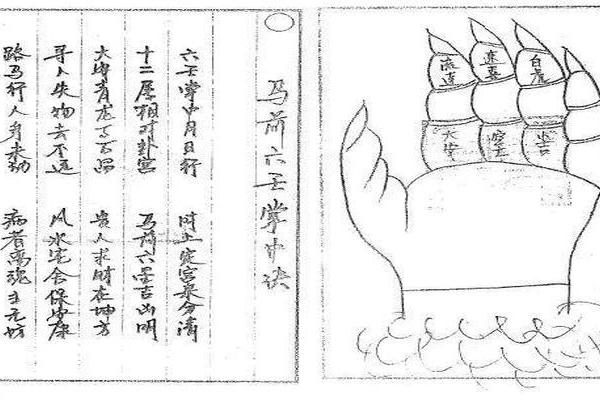 马前六壬掌中诀
六壬掌中月日行 时上定宫来分清
十二属相时卦宫 马前六壬吉凶明
大安青龙事百昌 贵人求财在坤方
寻人失物去不远 风水宅舍保安康
路马行人身未动 病者离魂主无妨
流连
速喜
白虎
大安
空亡
小吉